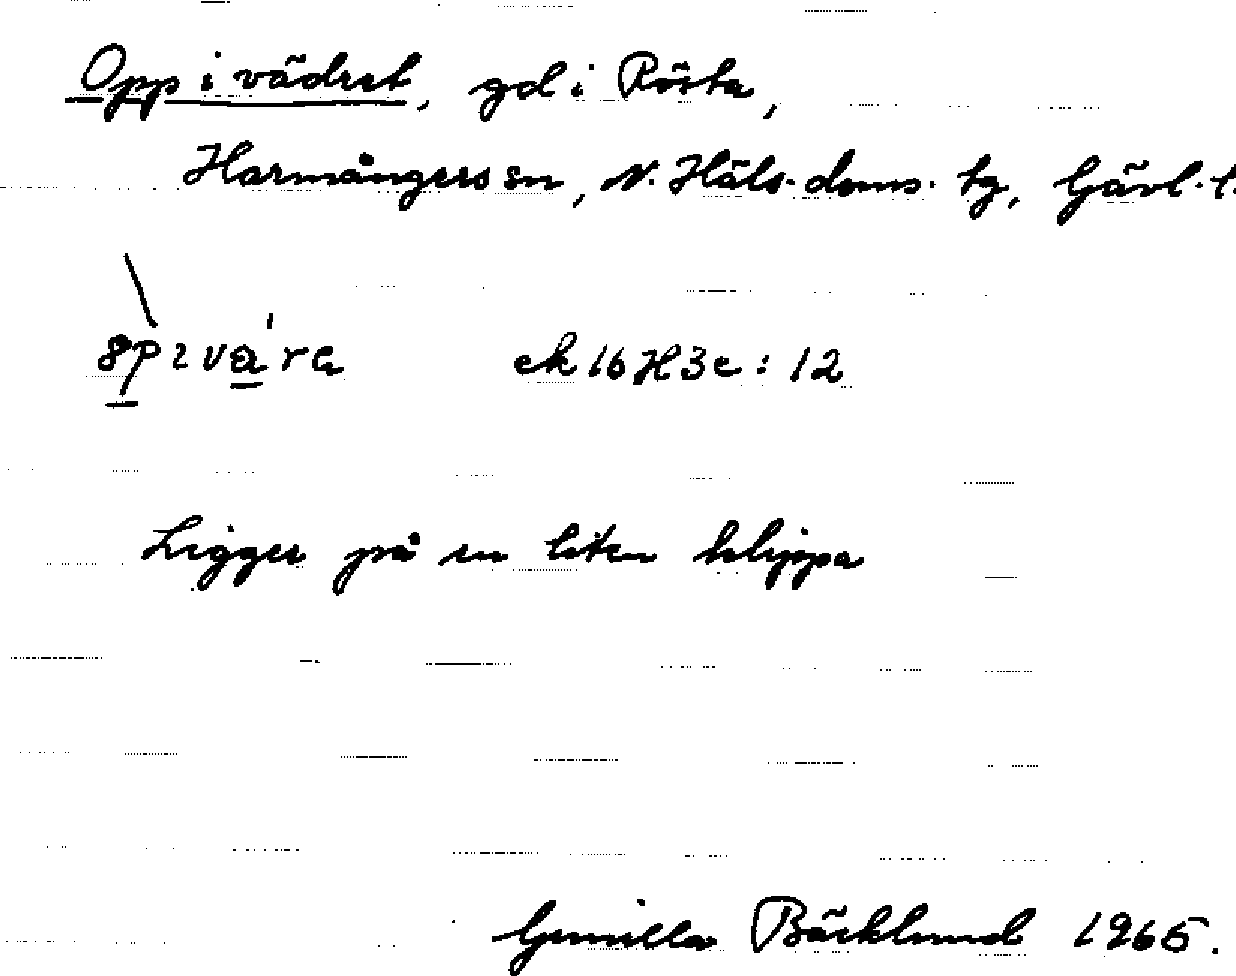 Opp i vädret, gd i Rösta,
Harmångers sn, N. Häls. doms. tg, Gävl. l.
ek 16H3e:12
Ligger på en liten klippa
Gunilla Bäcklund 1965.